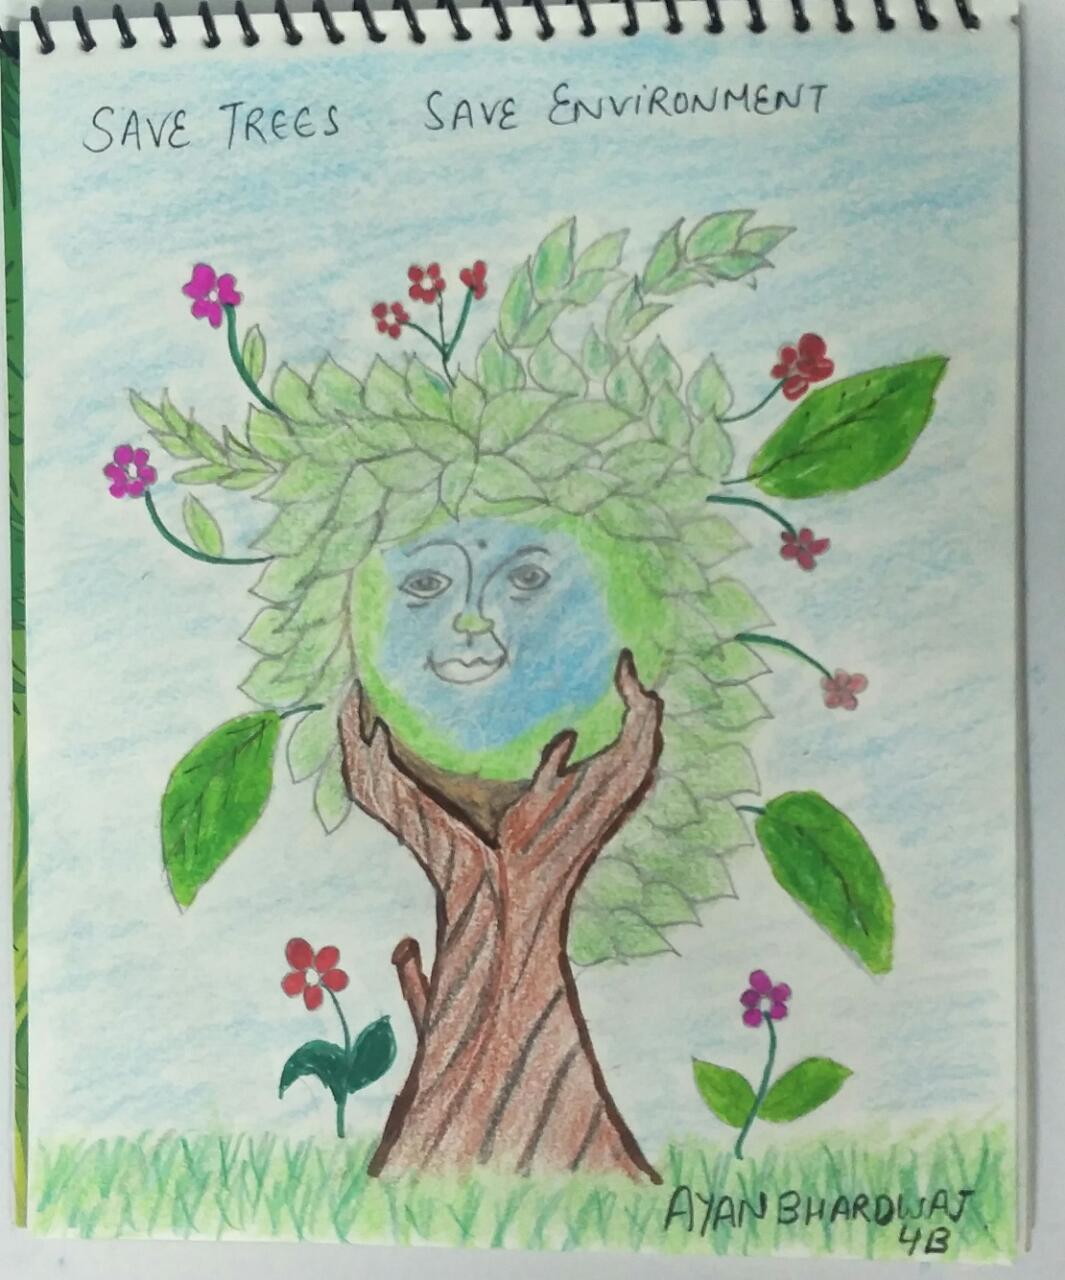 SAVE TREES SAVE ENVIRONMENT
AYAN BHARDWAJ
4B